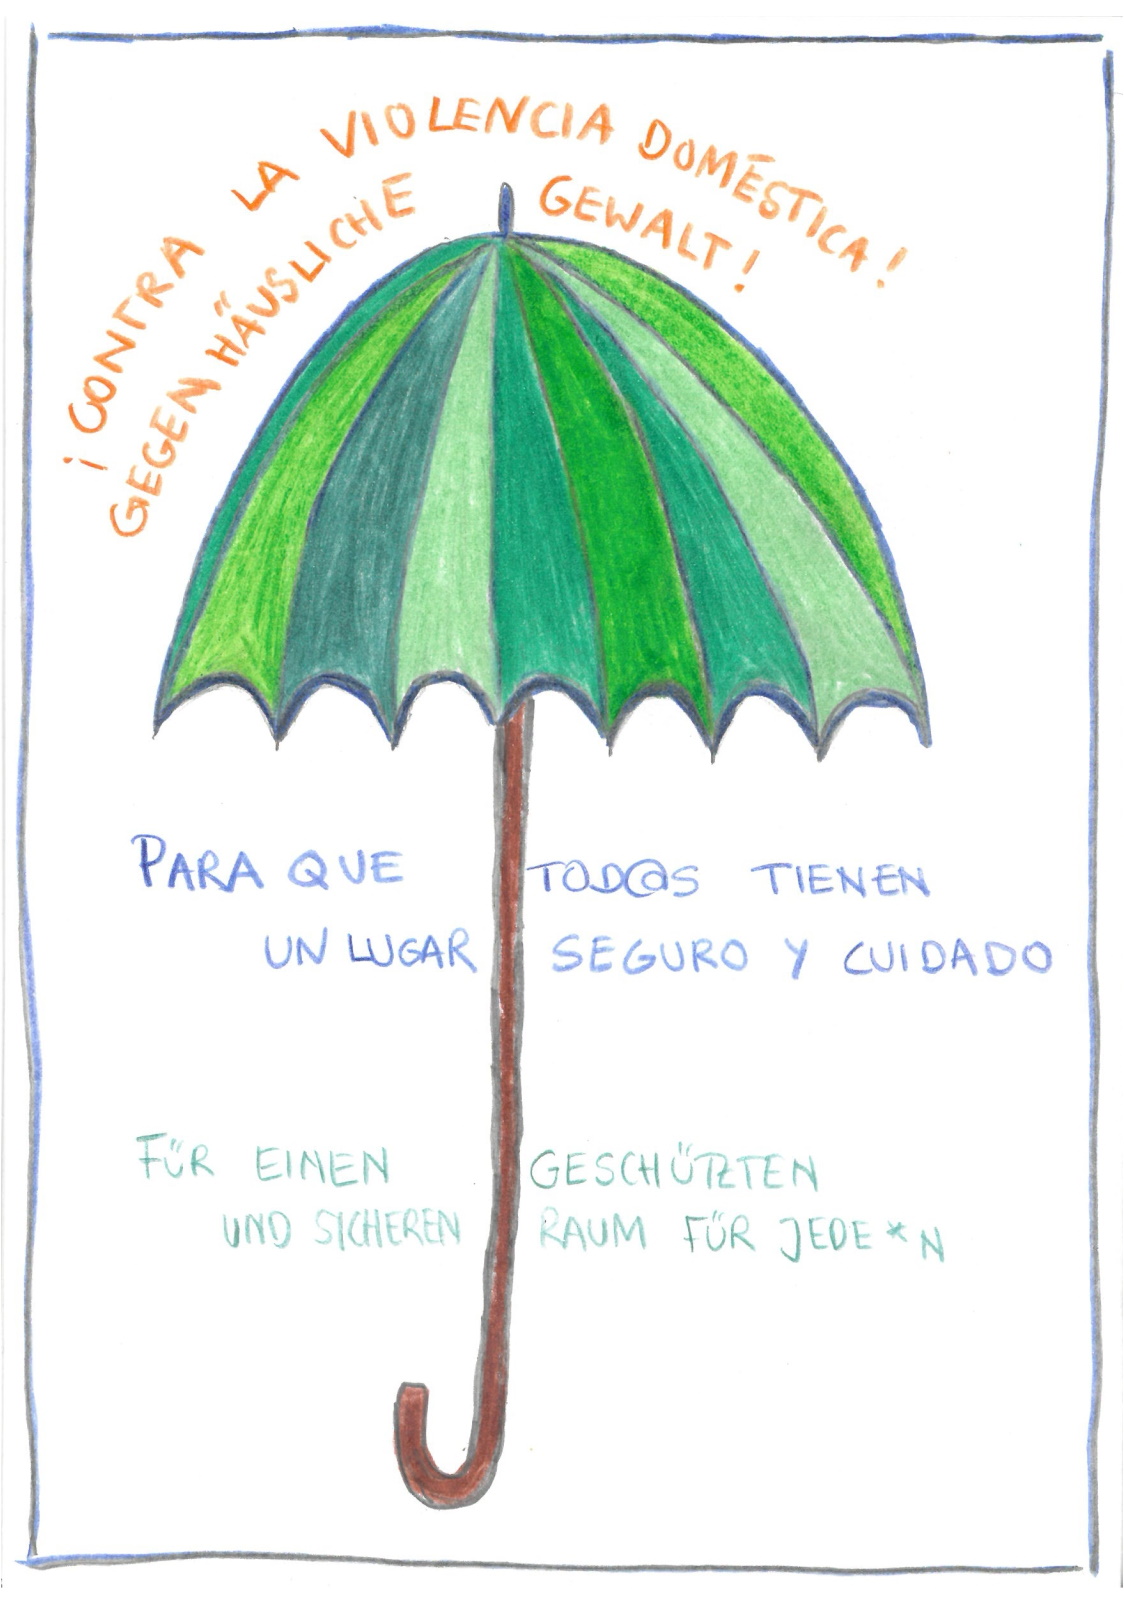 ¡CONTRA LA VIOLENCIA DOMÉSTICA!
GEGEN HÄUSLICHE GEWALT!
PARA QUE TOD@S TIENEN
UN LUGAR SEGURO Y CUIDADO
FÜR EINEN GESCHÜTZTEN
UND SICHEREN RAUM FÜR JEDE*N